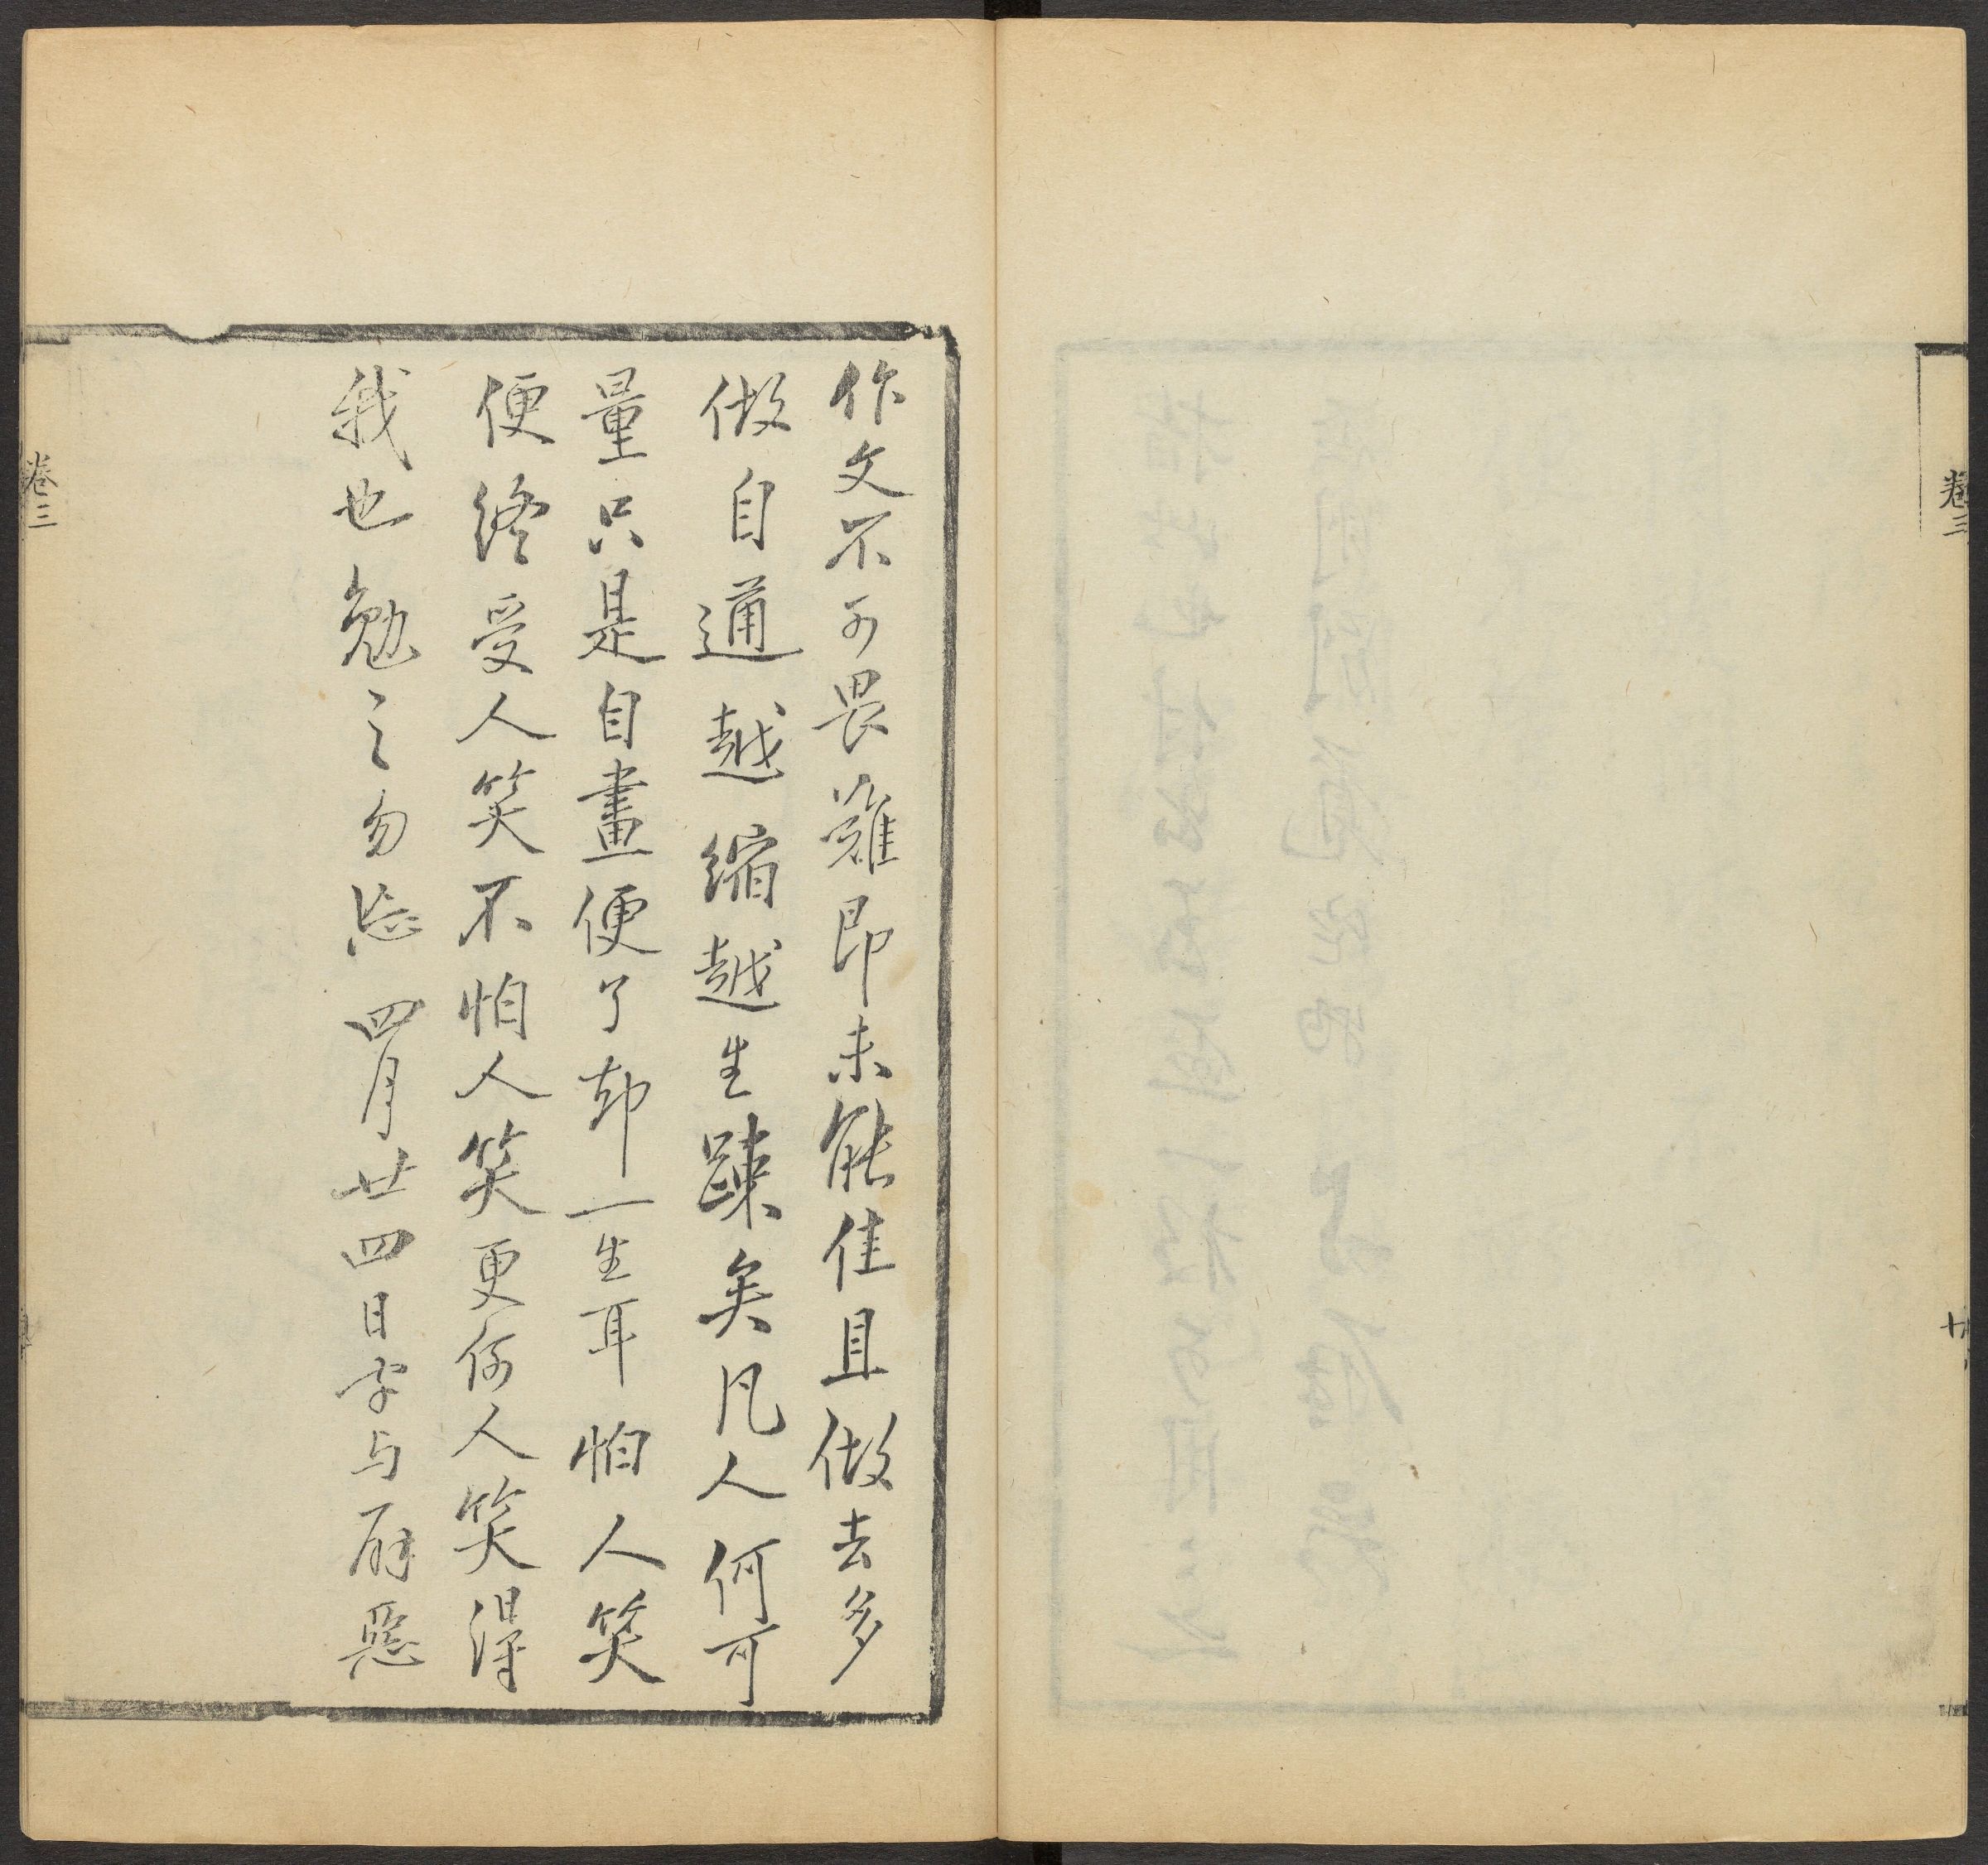 卷三
作文不可畏難即未能佳且做去多
做自通越縮越生踈矣凡人何可
量只是自畫便了却一生耳怕人笑
便終受人笑不怕人笑更何人笑得
我也勉之勿忘 四月廿四日字与辟惡
卷三